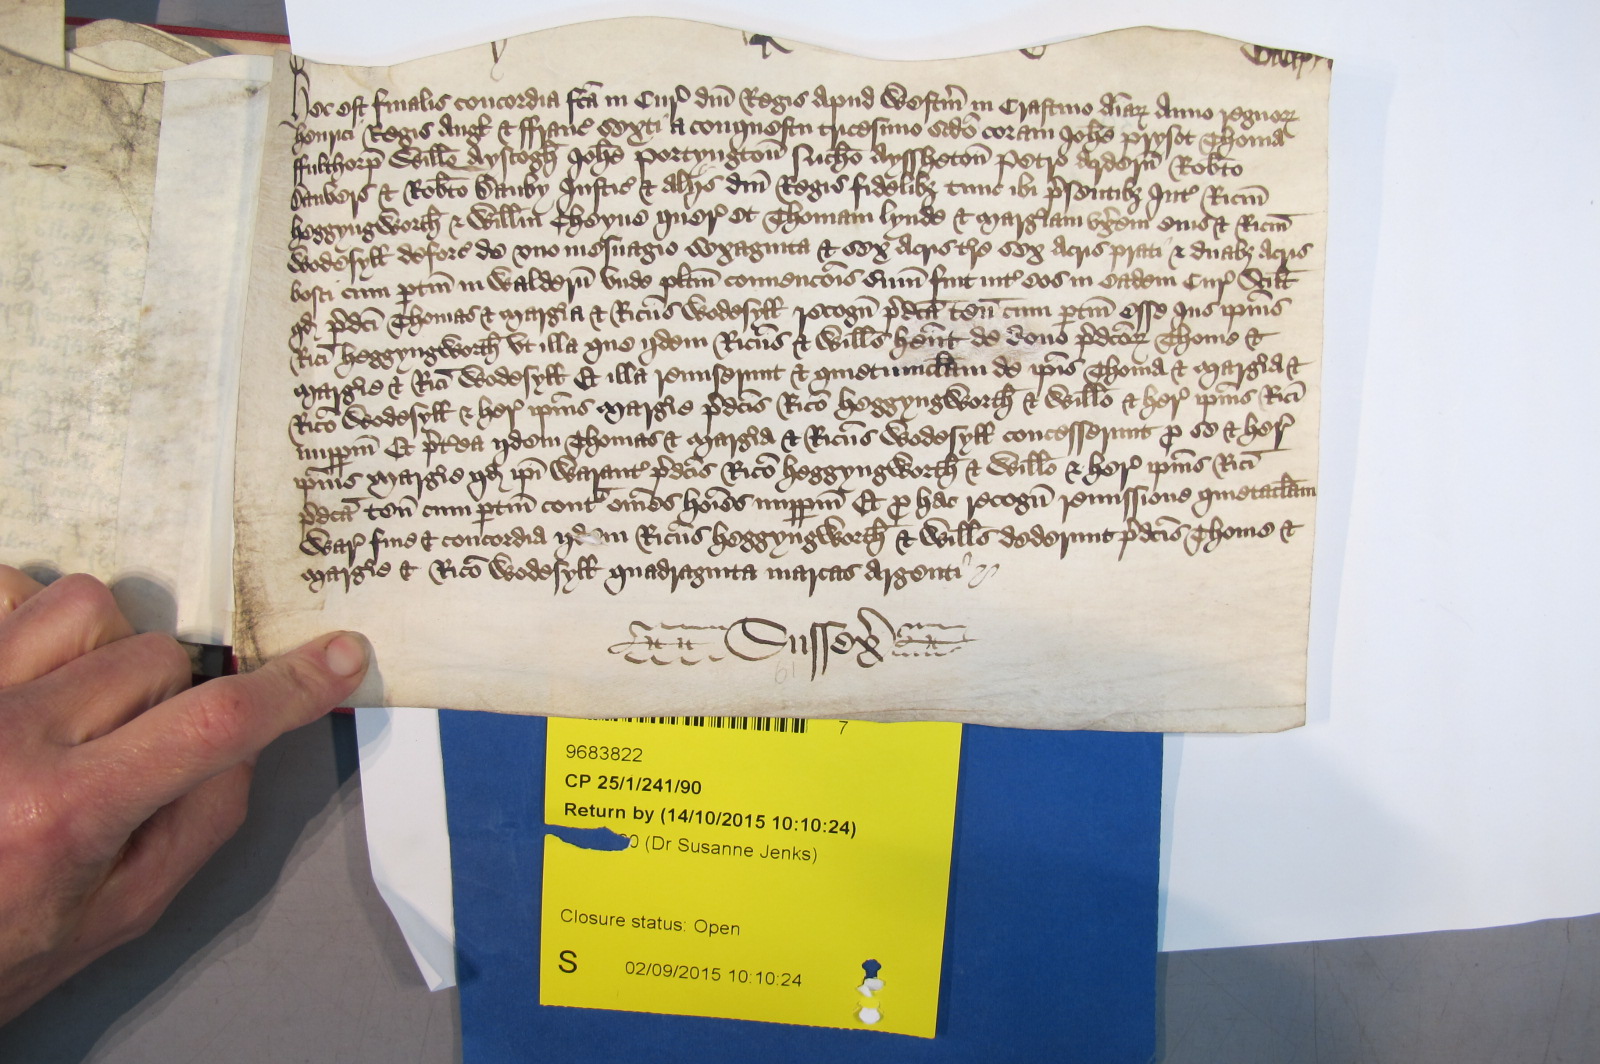 Hec est finalis concordia fc̃a in Cur̛ dñi Regis apud Westm̃ in Crastino aĩaꝝ Anno regnoꝝ
Henrici Regis Angł & ffranc̛ Sexti a conquestu tricesimo scđo coram Joħe Prysot Thoma
ffulthorp̃ Wiłło Ayscogħ Joħe Portyngtoñ Nicħo Ayssħetoñ Petro Arderñ Robt̃o
Danvers & Robt̃o Danby Justic̛ & alijs dñi Regis fidelibȝ tunc ibi p̃sentibȝ Int̛ Ricm̃
Heggyngwortħ & Willm̃ Cheyne quer̛ et Thomam Lynde & Marg̛iam vx̃em eius & Ricm̃
Wodesyłł deforc̛ de vno mesuagio sexaginta & sex acris t̃re sex acris prati & duabȝ acris
bosci cum ptiñ in Walderñ Vnde plitm̃ convencõis sum̃ fuit int̛ eos in eadem Cur̛ Scilt
qđ p̃dc̃i Thomas & Marg̛ia & Ricũs Wodesyłł recogñ p̃dc̃a teñ cum ptiñ esse Jus ip̃ius
Rici Heggyngwortħ Vt illa que ijdem Ricũs & Wiłłs hent de dono p̃dc̃oꝝ Thome &
Marg̛ie & Rici Wodesyłł Et illa remiserunt & quietumclam̃ de ip̃is Thoma & Marg̛ia &
Rico Wodesyłł & her̛ ip̃ius Marg̛ie p̃dc̃is Rico Heggyngwortħ & Wiłło & her̛ ip̃ius Rici
imppm̃ Et p̃t̃ea ijdem Thomas & Marg̛ia & Ricũs Wodesyłł concesserunt p se & her̛
ip̃ius Marg̛ie qđ ip̃i Warant̛ p̃dc̃is Rico Heggyngwortħ & Wiłło & her̛ ip̃ius Rici
p̃dc̃a teñ cum ptiñ cont̛ om̃es hoĩes imppm̃ Et p hac recogñ remissione quietaclam̃
War̛ fine & concordia ijdem Ricũs Heggyngwortħ & Wiłłs dederunt p̃dc̃is Thome &
Marg̛ie & Rico Wodesyłł quadraginta marcas argenti
Sussex̛
61
7
9683822
CP 25/1/241/90
Return by (14/10/2015 10:10:24)
0 (Dr Susanne Jenks)
Closure status: Open
S 02/09/2015 10:10:24